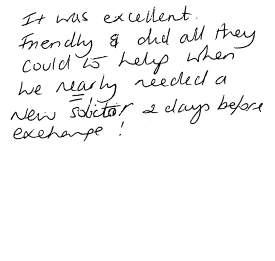 It was excellent.
Friendly & did all they
could to help when
we nearly needed a
new solicitor 2 days before
exchange !